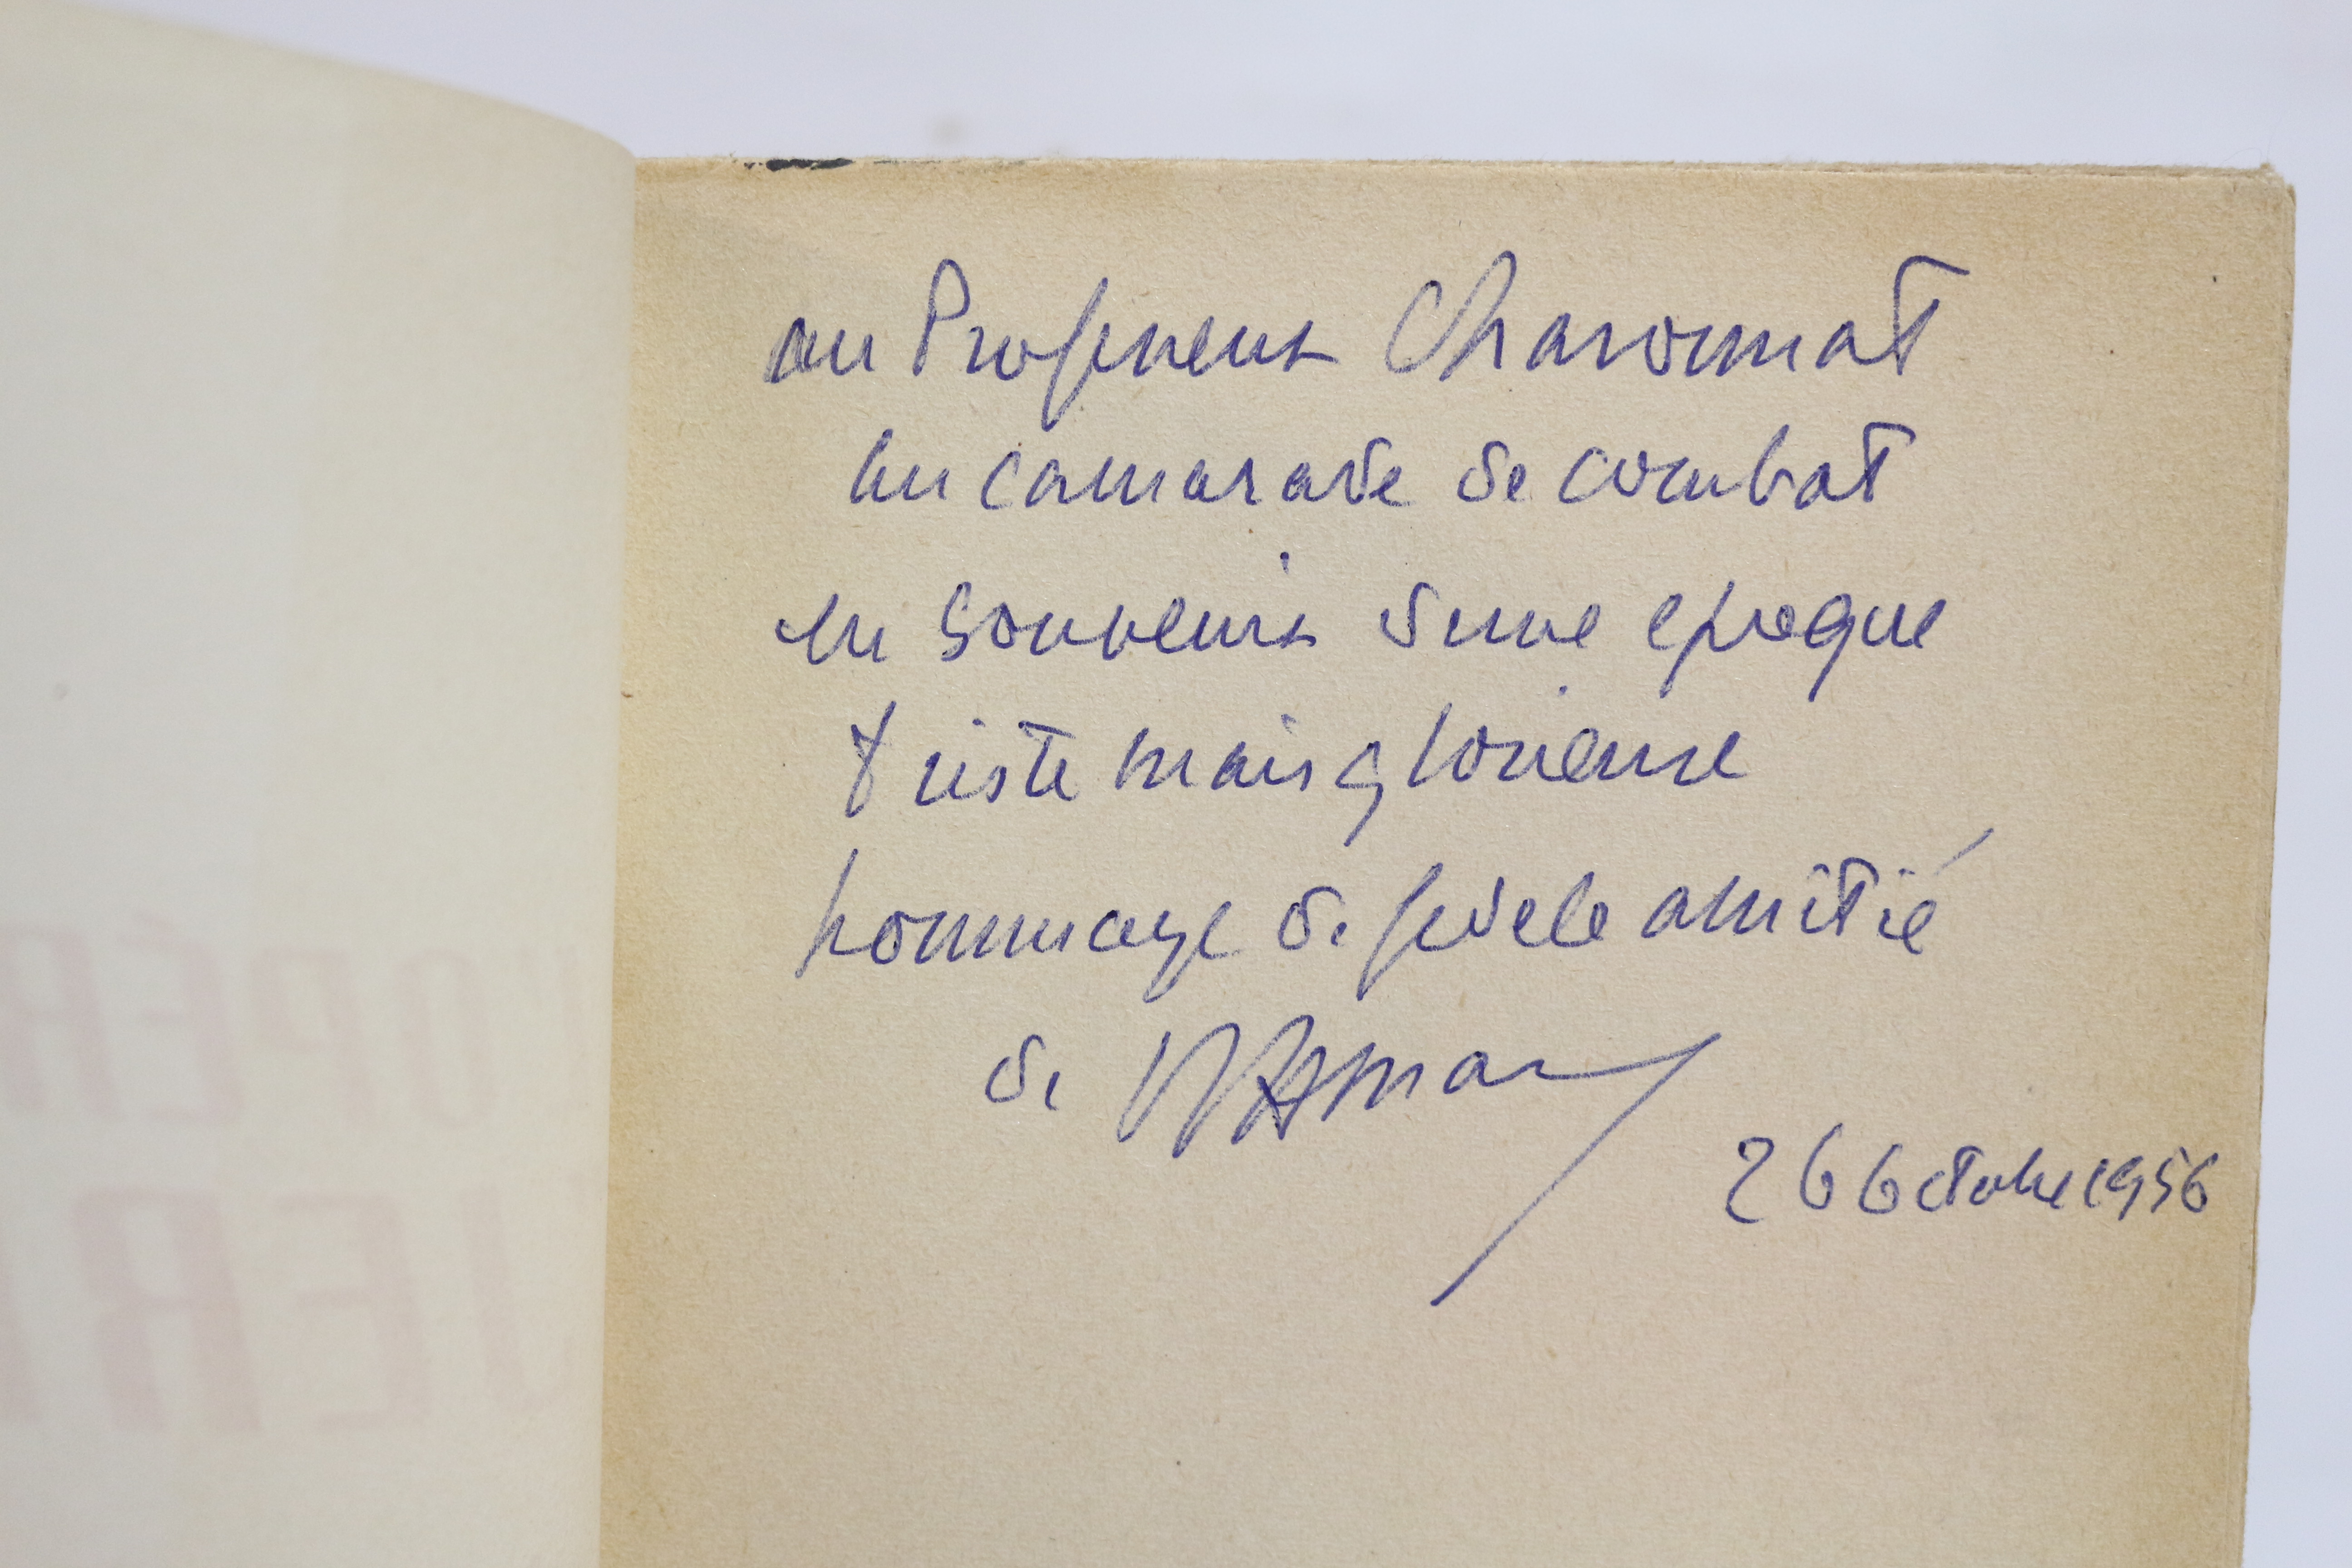 au Professeur Charonnat
au camarade de combat
en souvenir d'une epoque
triste mais glorieuse
hommage de fidele amitié
de
26 Octobre 1956